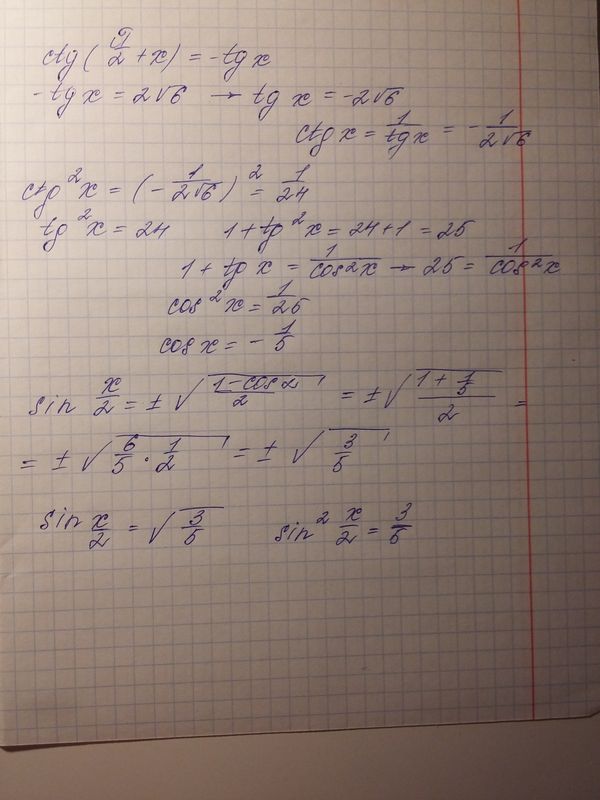 ctg(π/2 + x) = -tg x
-tg x = 2√6 → tg x = -2√6
ctg x = 1/tg x = - 1/2√6
ctg²x = (- 1/2√6)² = 1/24
tg²x = 24 1 + tg²x = 24 + 1 = 25
1 + tg x = 1/cos²x → 25 = 1/cos²x
cos²x = 1/25
cos x = - 1/5
sin x/2 = ± √((1-cos α)/2) = ± √((1 + 1/5)/2) =
= ± √(6/5 · 1/2) = ± √(3/5)
sin x/2 = √(3/5) sin² x/2 = 3/5